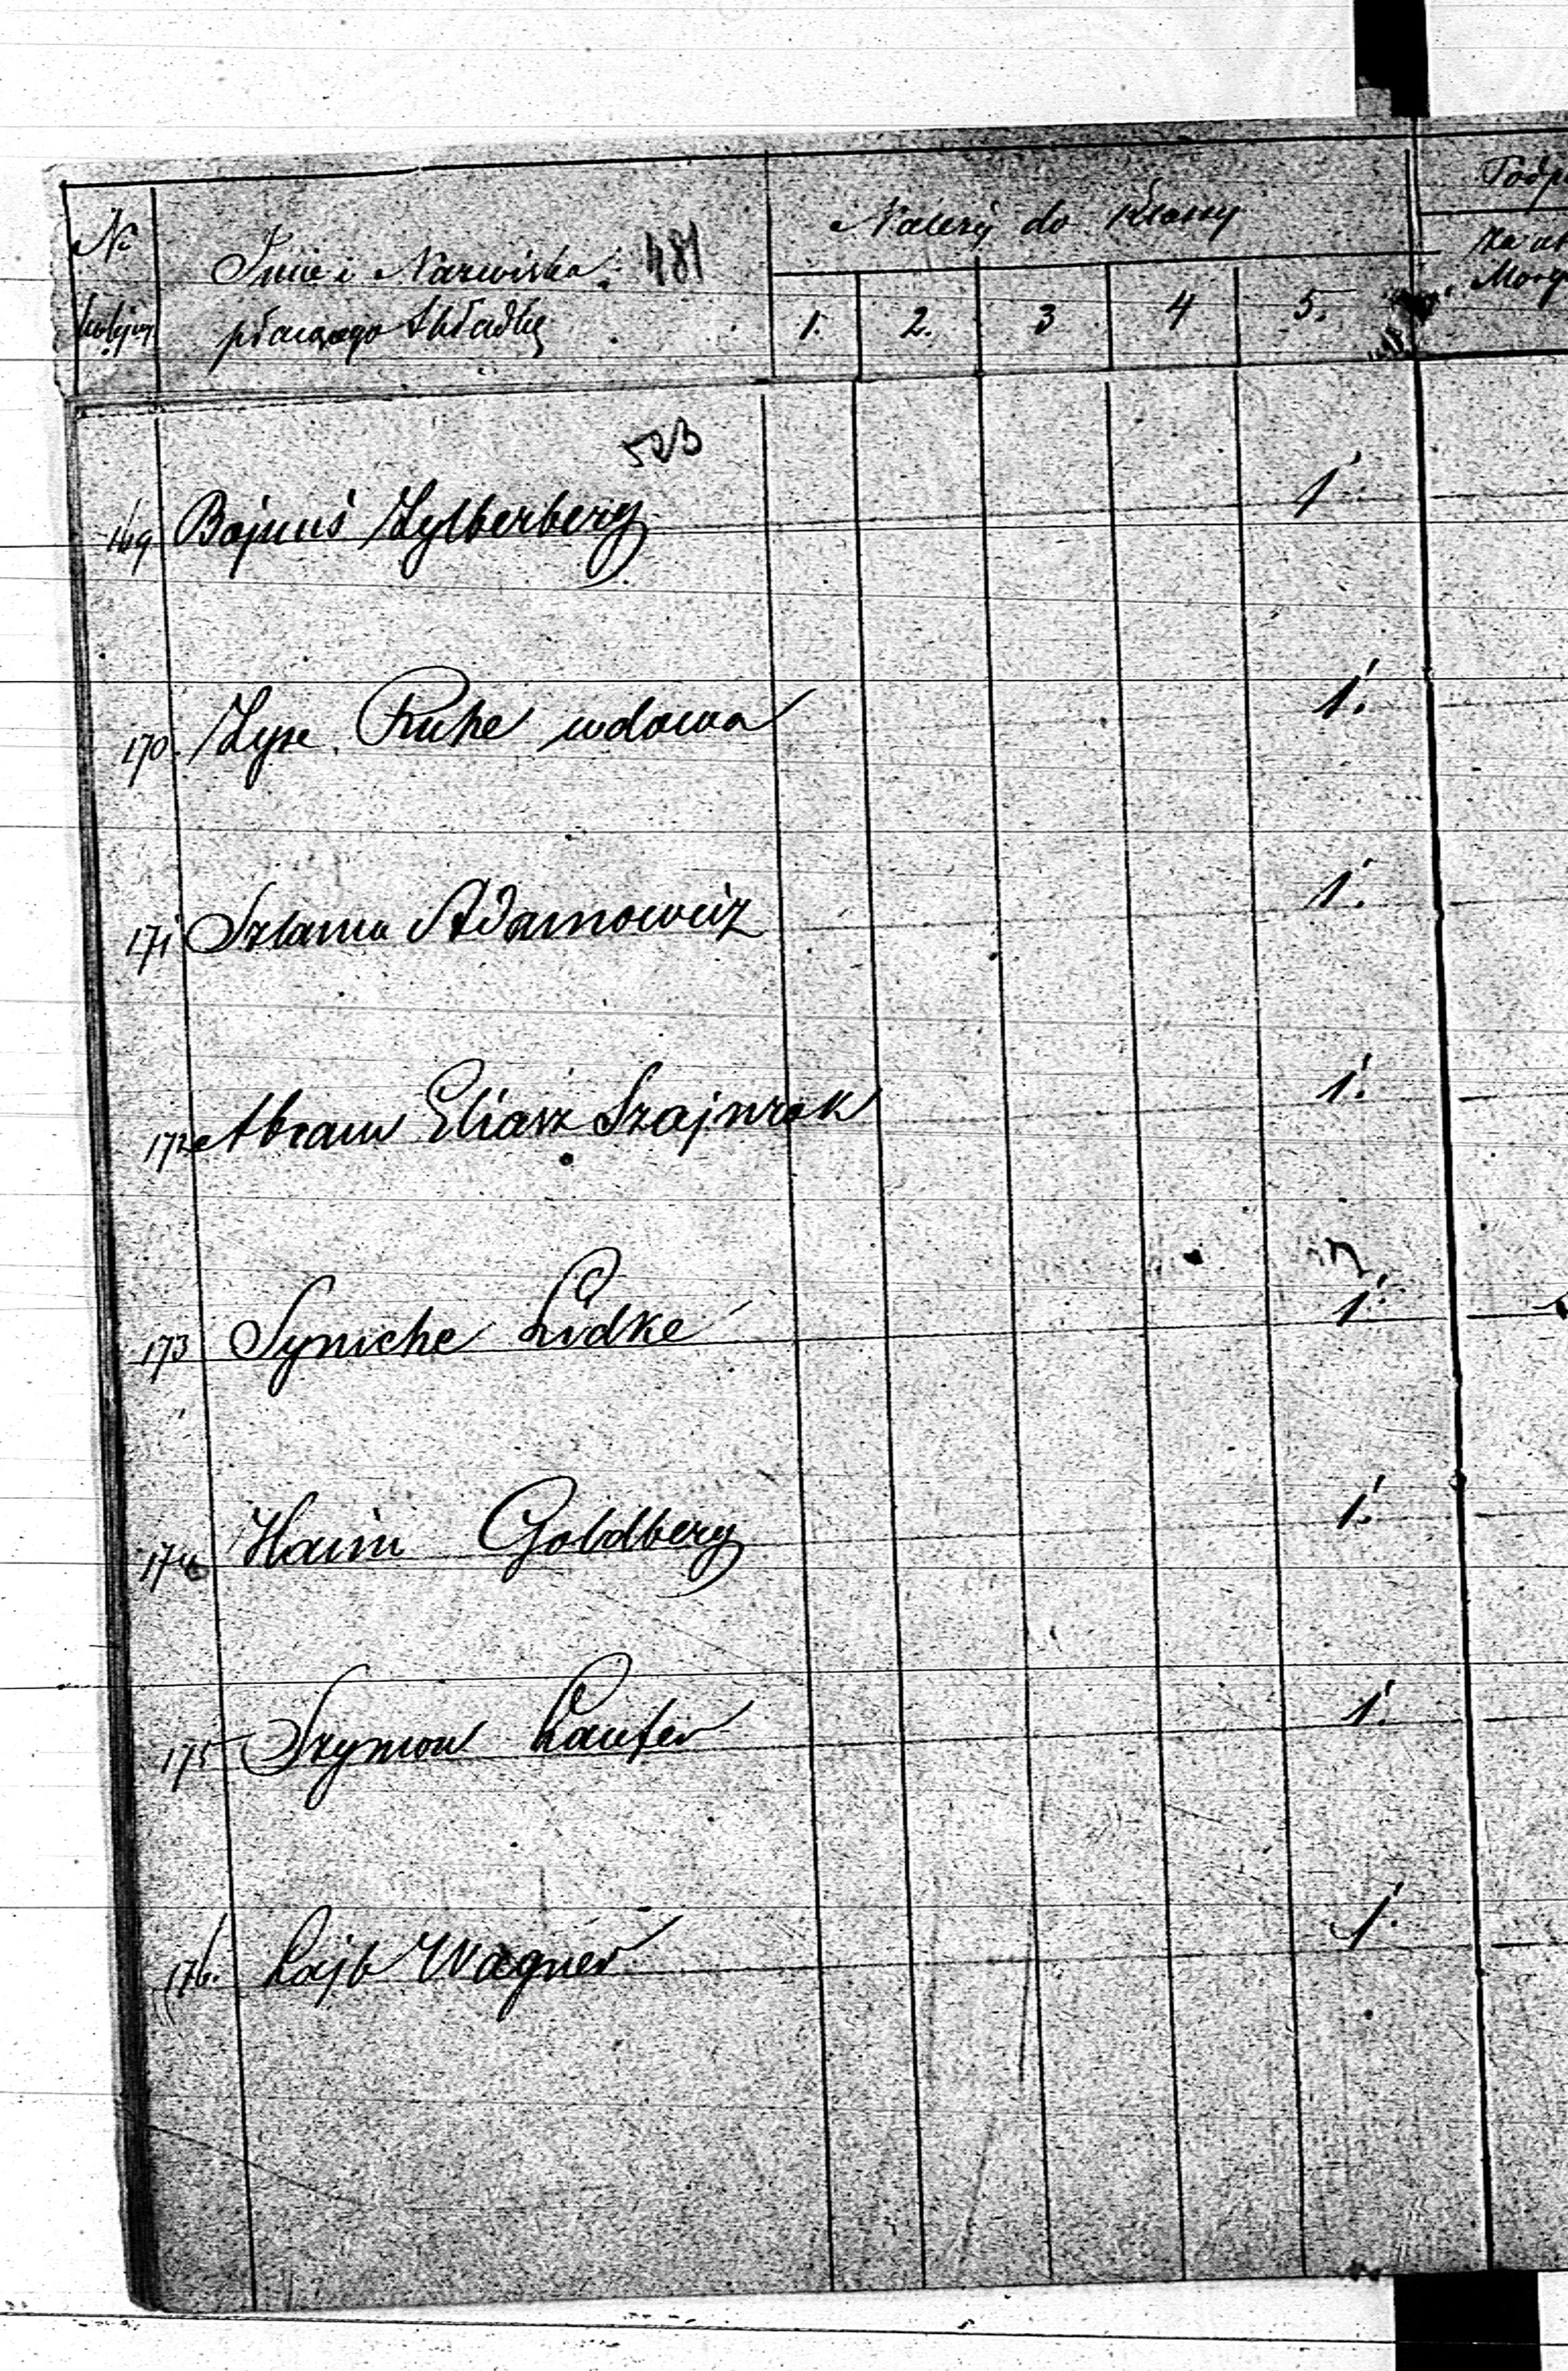 No kolejny
Imie i Nazwiska 481
płacącego składkę
Należy do Klassy
1. 2. 3 4 5.
523
169 Bajnuś Zylberberg 1
170. Zyse Ruhe wdowa 1.
171 Szlama Adamowicz 1.
172 Abram Eliasz Szajnrok 1.
173 Symche Lidke 1.
174 Haim Goldberg 1.
175 Szymon Laufer 1.
176. Lajb Wagner 1.